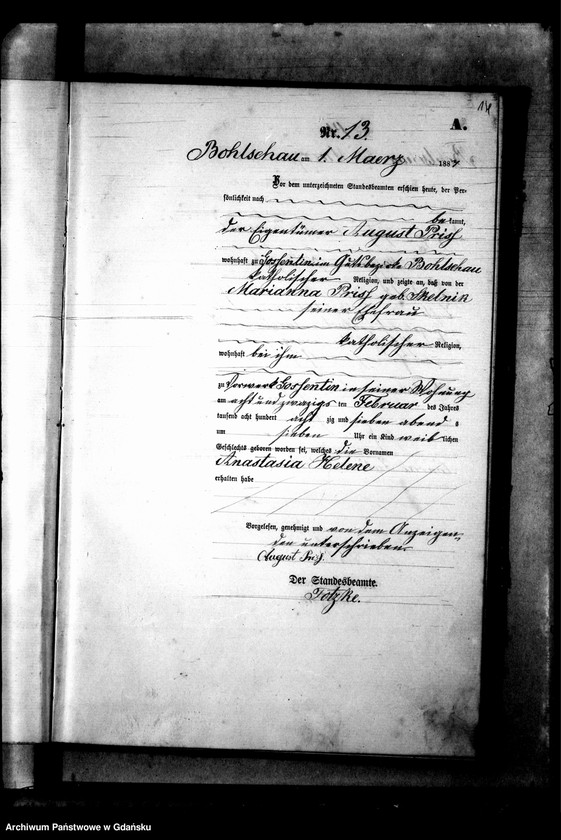 14
A.
Nr. 13.
Bohlschau am 1. Maerz 1887
Vor dem unterzeichneten Standesbeamten erschien heute, der Per-
sönlichkeit nach
be kannt,
der Eigentümer August
wohnhaft zu Gossentin im Gutsbezirke Bohlschau
katholischer Religion, und zeigte an, daß von der
Marianna geb. Skelnik
seiner Ehefrau
katholischer Religion,
wohnhaft bei ihm
zu Vorwerk Gossentin in seiner Wohnung
am acht und zwazigs ten Februar des Jahres
tausend acht hundert acht zig und sieben abend s
um sieben Uhr ein Kind weib lichen
Geschlechts geboren worden sei, welches die Vornamen
Anastasia Helene
erhalten habe
Vorgelesen, genehmigt und von dem Anzeigen,
den unterschrieben
August
Der Standesbeamte.
Totzke.
Archiwum Państwowe w Gdańsku